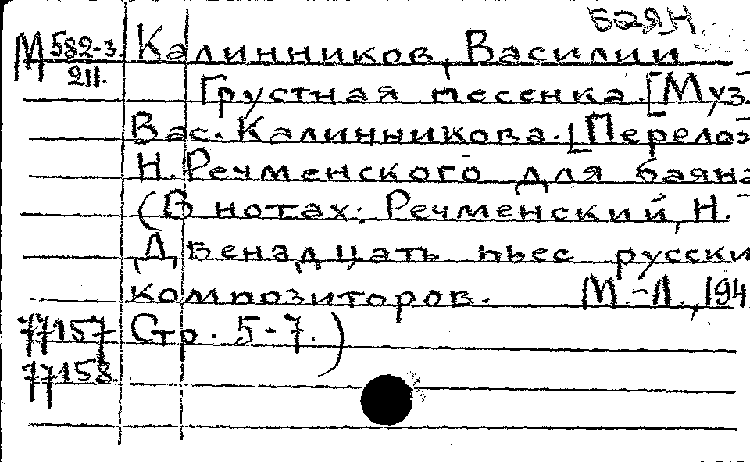 БАЯН
М 582-3 Калинников, Василий
211. Грустная песенка. [Муз.
Вас. Калинникова. [Перелож
Н. Речменского для баяна
(В нотах: Речменский, Н.
Двенадцать пьес русски
композиторов. М.-Л., 194
77157 Стр. 5-7.)
77158